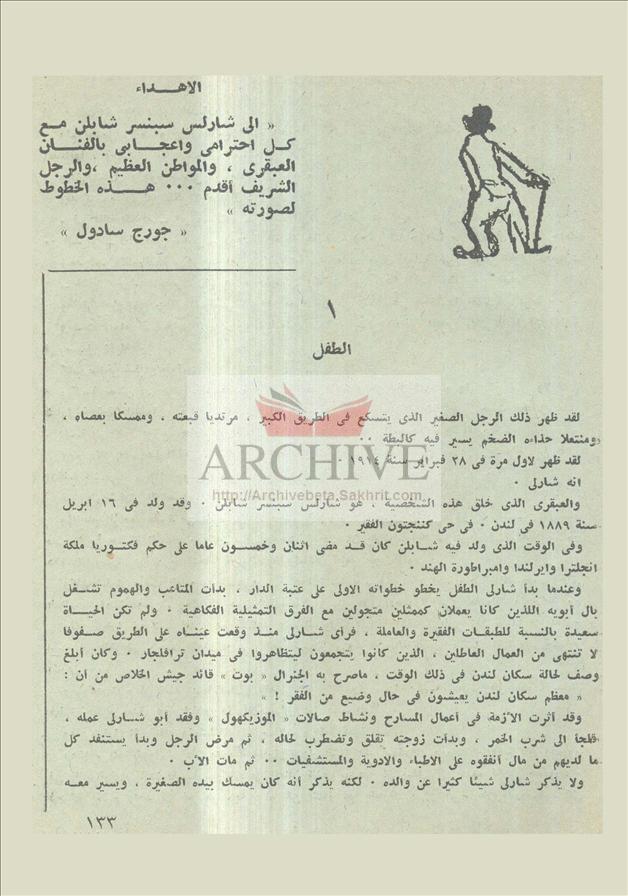 الاهـــداء
« الى شارلس سبنسر شابلن مع
كـل احترامى واعجـابى بالفنـان
العبقرى ، والمواطن العظيم ،والرجل
الشريف أقدم ٠٠٠ هـــذه الخطوط
لصورته »
« جورج سادول »
١
الطفل
لقد ظهر ذلك الرجل الصغير الذى يتسكع فى الطريق الكبير ، مرتديا قبعته ، وممسكا بعصاه ،
ومنتعلا حذاءه الضخم يسير فيه كالبطة ٠٠
لقد ظهر لاول مرة فى ٢٨ فبراير سنة ١٩١٤ ٠
انه شارلى ٠
والعبقرى الذى خلق هذه الشخصية ، هو شارلس سبنسر شابلن ٠ وقد ولد فى ١٦ ابريل
سنة ١٨٨٩ فى لندن ٠ فى حى كننجتون الفقير ٠
وفى الوقت الذى ولد فيه شـابلن كان قـد مضى اثنان وخمسـون عاما على حكم فكتـوريا ملكة
انجلترا وايرلندا وامبراطورة الهند ٠
وعندما بدأ شارلى الطفل يخطو خطواته الاولى على عتبة الدار ، بدأت المتاعب والهموم تشـغل
بال أبويه اللذين كانا يعملان كممثلين متجولين مع الفرق التمثيلية الفكاهية ٠ ولم تكن الحيـاة
سعيدة بالنسبة للطبقات الفقيرة والعاملة ، فرأى شـارلى منـذ وقعت عينـاه على الطريق صـفوفا
لا تنتهى من العمال العاطلين ، الذين كانوا يتجمعون ليتظاهروا فى ميدان ترافلجار ٠ وكان أبلغ
وصف لحالة سكان لندن فى ذلك الوقت ، ماصرح به الجنرال « بوت » قائد جيش الخلاص من أن :
« معظم سكان لندن يعيشون فى حال وضيع من الفقر ! »
وقد أثرت الازمة فى أعمال المسارح ونشاط صالات « الموزيكهول » وفقد أبو شـارلى عمله ،
فلجأ الى شرب الخمر ، وبدأت زوجته تقلق وتضطرب لحاله ، ثم مرض الرجل وبدأ يستنفد كل
ما لديهم من مال أنفقوه على الاطباء والادوية والمستشفيات ٠٠ ثم مات الاب ٠
ولا يذكر شارلى شيئا كثيرا عن والده ٠ لكنه يذكر أنه كان يمسك بيده الصغيرة ، ويسير معـه
١٣٣
ARCHIVE
http://Archivebeta.Sakhrit.com